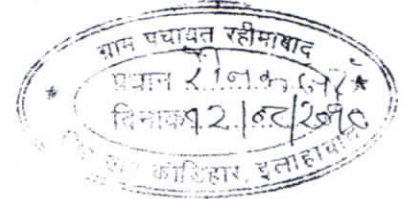 ग्राम पंचायत रहीमाबाद
प्रधान
दिनांक 12/08/2010
कौडिहार, इलाहाबाद